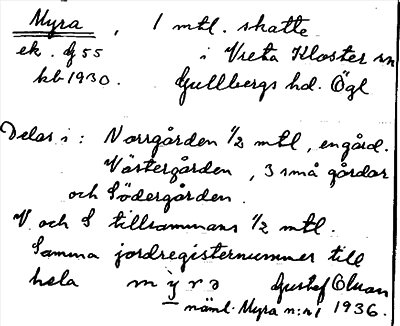 Myra, 1 mtl. skatte
ek. G 55 i Vreta Kloster sn
kb 1930. Gullbergs hd. Ögl
Delas i: Norrgården 1/2 mtl, en gård.
Västergården, 3 små gårdar
och Södergården.
V. och S tillsammans 1/2 mtl.
Samma jordregisternummer till
hela myrə Gustaf Olsson
näml. Myra n:r 1 1936.